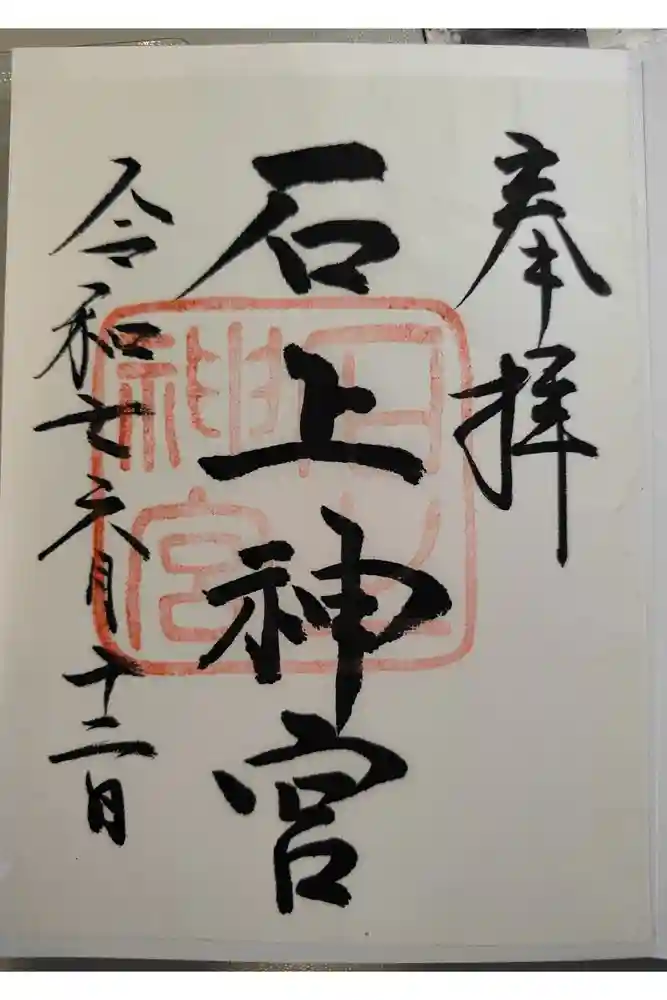 奉拝
石上神宮
令和七六月十二日
石上神宮